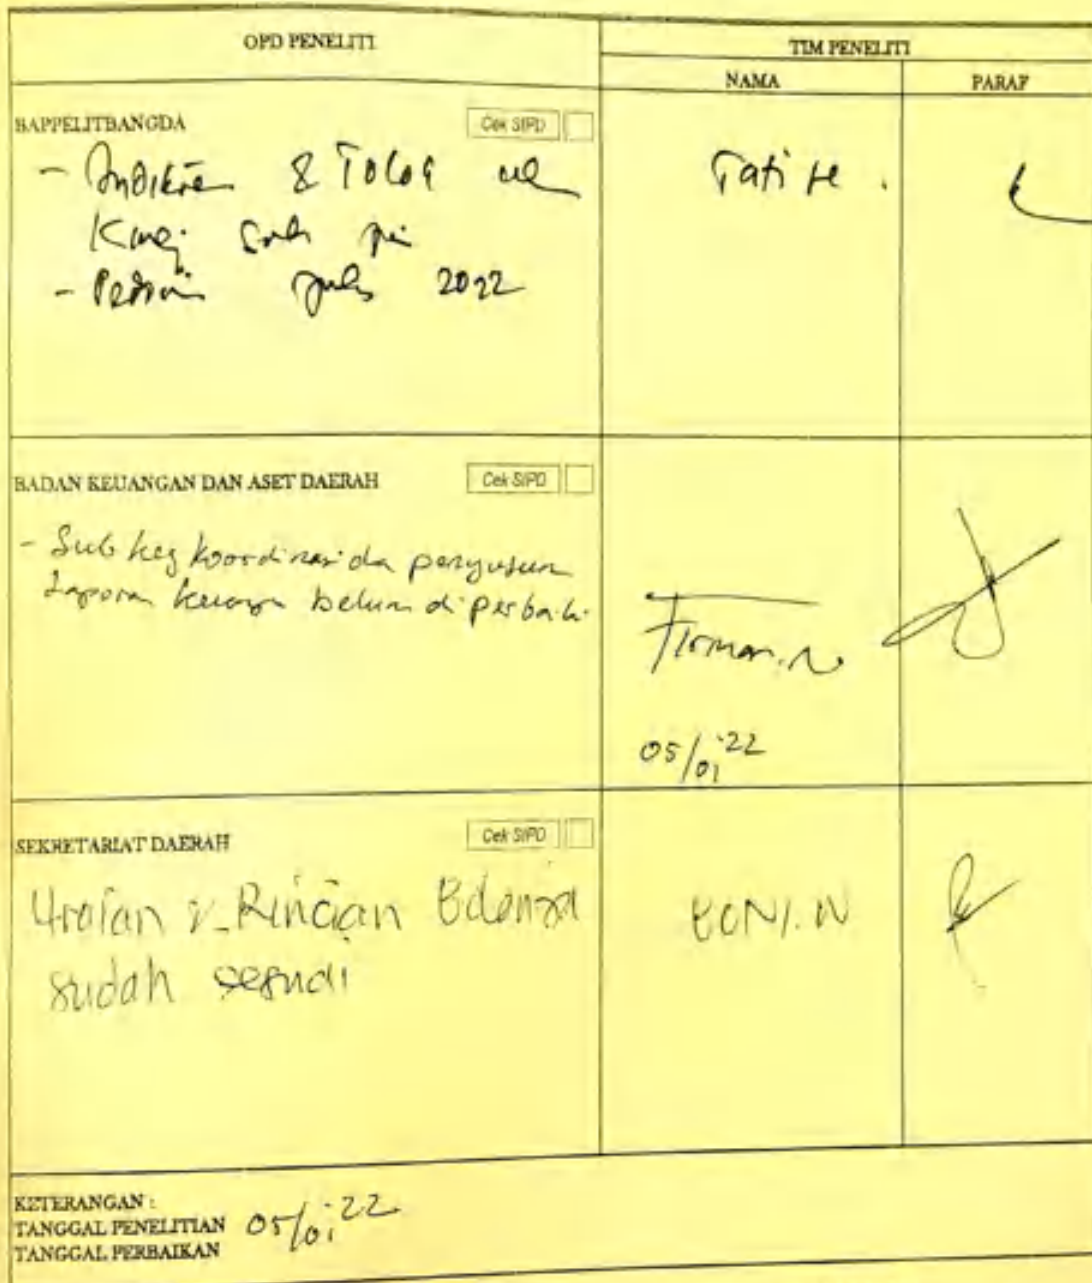 OPD PENELITI
TIM PENELITI
NAMA
PARAF
BAPPELITBANGDA
Cek SIPD
- Indikator & Tolok
- 2022
Tati
BADAN KEUANGAN DAN ASET DAERAH
Cek SIPD
- Sub keg koordinasi da penyusun
Laporan keuanga belum di perbaiki
Firman.N
05/01'22
SEKRETARIAT DAERAH
Cek SIPD
Uraian & Rincian Belanja
sudah sesuai
BONI.N
KETERANGAN :
TANGGAL PENELITIAN 05/01'22
TANGGAL PERBAIKAN